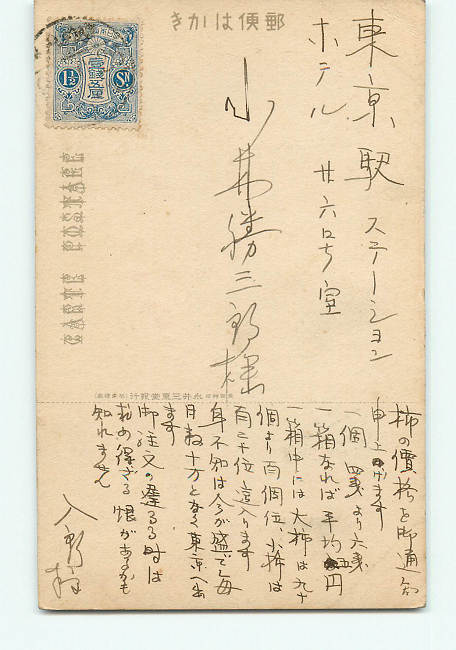 郵便はかき
東京駅ステーション
ホテル 廿六号室
小井勝三郎様
CARTE POSTALE
1½ Sn
壹錢五厘
永井三星堂發行
柿の價格を御通知
申上げます
一個四銭より六銭
一箱なれば平均 円
一箱中には大柿は九十
個より百個位小柿は
百二十位這入ります
身不知は今が盛で毎
日数十万となく東京へ出
ます
御注文の遅るゝ時は
求め得ざる恨があるかも
知れません